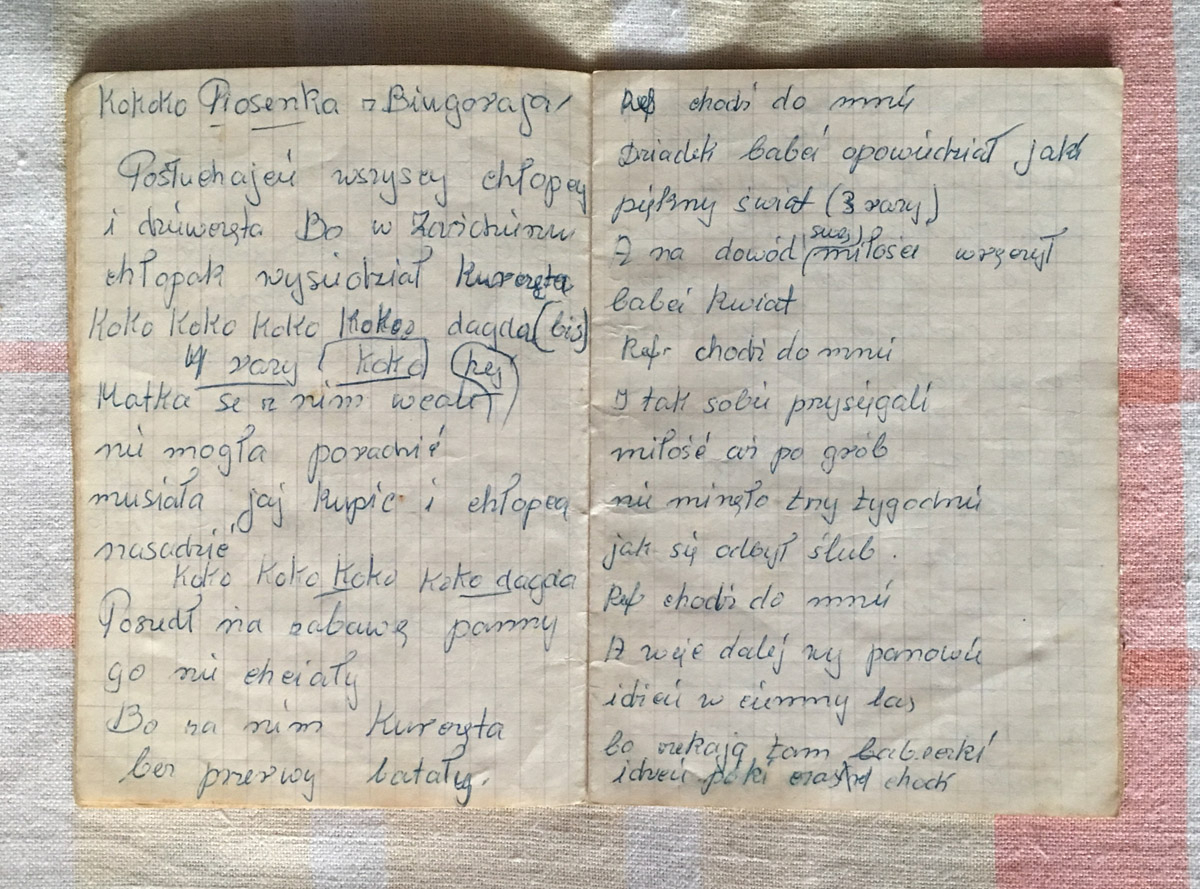 Kokoko Piosenka z Biłgoraja
Posłuchajcie wszyscy chłopcy
i dziewczęta Bo w Zawichwu
chłopak wysiedział kurczęta
Koko Koko Koko Koko dagda (bis)
4 razy (koko) hej
Matka se z nim wcale
nie mogła poradzić
musiała jaj kupić i chłopca
nasadzić
Koko Koko Koko Koko dagda
Poszedł na zabawę panny
go nie chciały
Bo za nim kurczęta
bez przerwy latały.
Ref chodź do mnie
Dziadek babci opowiedział jaki
piękny świat (3 razy)
A na dowód swej miłości wręczył
babci kwiat
Ref. chodź do mnie
I tak sobie przysięgali
miłość aż po grób
nie minęło trzy tygodnie
jak się odbył ślub.
Ref chodź do mnie
A więc dalej wy panowie
idźcie w ciemny las
bo czekają tam babeczki
idzcie póki czas chodź